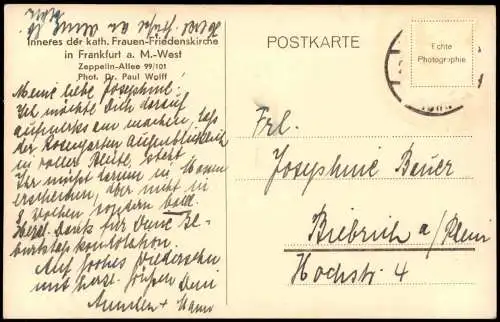 Inneres der kath. Frauen-Friedenskirche
in Frankfurt a. M.-West
Zeppelin-Allee 99/101
Phot. Dr. Paul Wolff
POSTKARTE
Echte
Photographie
Meine liebe Josephine!
Ich möchte Dich darauf
aufmerksam machen, daß
der Rosengarten augenblicklich
in voller Blüte steht.
Ihr müßt darum in
erscheinen, aber nicht in
Wochen sondern bald.
Herzl. Dank für Deine Ge-
burtstagsgratulation.
Auf frohes Wiedersehen
und herzl. Grüßen Dein
Frl.
Josephine Bauer
Biebrich a/Rhein
Hochstr. 4